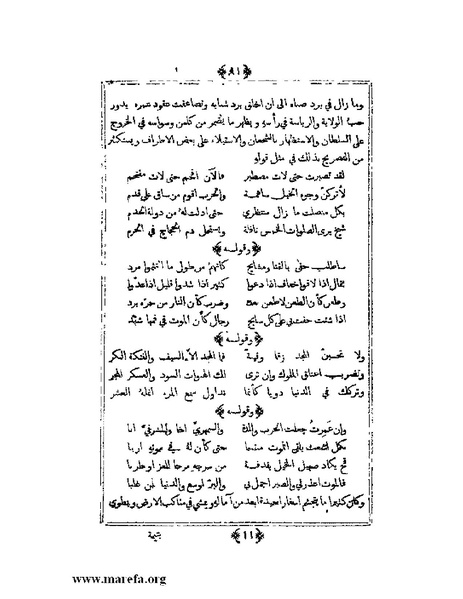 ﴿ ٨١ ﴾
وما زال في برد صباه الى ان اخلق برد شبابه وتضاعفت عقود عمره يدور
حب الولاية والرياسة في رأسه ويظهر ما يضمر من كامن وسواسه في الخروج
على السلطان والاستظهار بالشجعان والاستيلاء على بعض الاطراف ويستكثر
من التصريح بذلك في مثل قوله
لقد تصبرت حتى لات مصطبر فالآن اقحم حتى لات مقتحم
لأتركنّ وجوه الخيل ساهمة والحرب اقوم من ساق على قدم
بكل منصلت ما زال منتظري حتى ادلت له من دولة الخدم
شيخ يرى الصلوات الخمس نافلة ويستحل دم الحجاج في الحرم
﴿ وقوله ﴾
ساطلب حقي بالقنا ومشايخ كانهم من طول ما التثموا مرد
ثقال اذا لاقوا خفاف اذا دعوا كثير اذا شدوا قليل اذا عدّوا
وطعن كأن الطعن لا طعن عنده وضرب كأن النار من حره برد
اذا شئت حفت بي على كل سابح رجال كأن الموت في فمها شهد
﴿ وقوله ﴾
ولا تحسبنّ المجد زقا وقينة فما المجد الا السيف والفتكة البكر
وتضريب اعناق الملوك وان ترى لك الهبوات السود والعسكر المجر
وتركك في الدنيا دويا كأنما تداول سمع المرء انمله العشر
﴿ وقوله ﴾
وإن عمرت جعلت الحرب والدة والسمهريّ اخا والمشرفيّ ابا
بكل اشعث يلقى الموت مبتسما حتى كأن له في موته اربا
قح يكاد صهيل الخيل يقذفه من سرجه مرحا للعز او طربا
فالموت اعذر لي والصبر اجمل بي والبرّ اوسع والدنيا لمن غلبا
وكان كثيرا ما يتجشم اسفارا بعيدة ابعد من آماله ويمشي في مناكب الارض ويطوي
﴿ ١١ ﴾ يتيمة
www.marefa.org